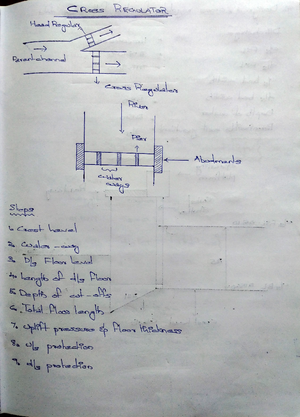 CROSS REGULATOR
Head Regular
Parent channel
Cross Regulator
River
Pier
Abutments
water
ways
Steps
1. Crest Level
2. Water-way
3. D/s Floor Level
4. Length of d/s floor
5. Depth of cut-offs
6. Total floor length
7. Uplift pressures & floor thickness
8. u/s protection
9. d/s protection